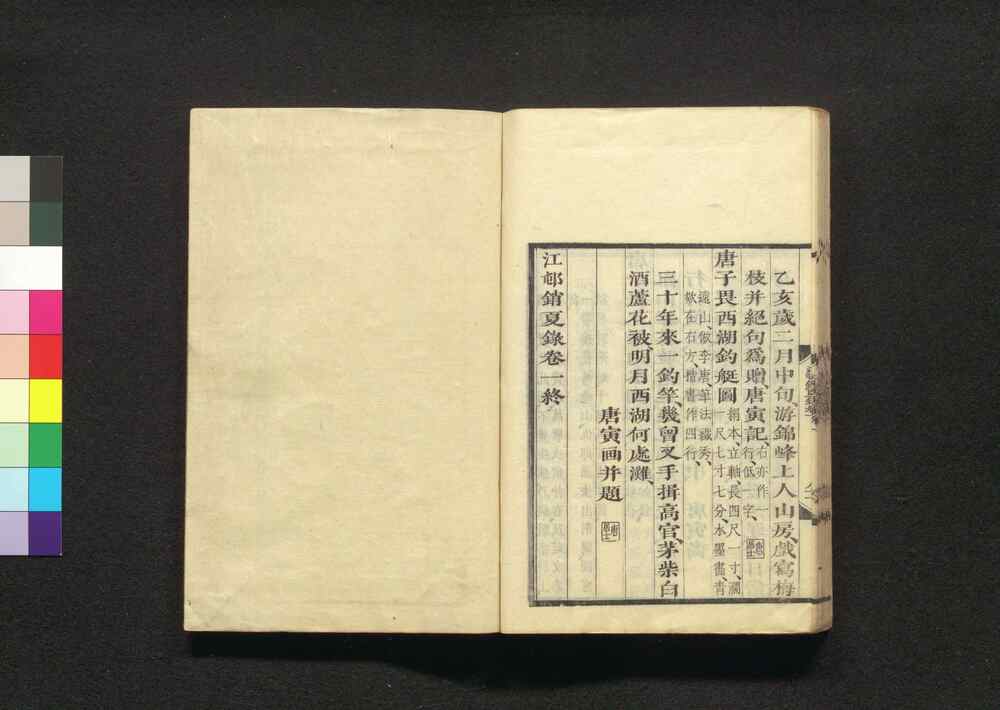 乙亥歲二月中旬、游錦峰上人山房、戲寫梅
枝并絕句爲贈、唐寅記、右亦作一行低一字、
唐子畏西湖釣艇圖絹本、立軸、長四尺一寸、濶一尺七寸七分、水墨畫、青
遠山、倣李唐筆法、蒼秀、欵在右方、楷書作四行、
三十年來一釣竿、幾曾叉手揖高官、茅柴白
酒蘆花被、明月西湖何處灘、
唐寅画并題
江邨銷夏錄卷一終